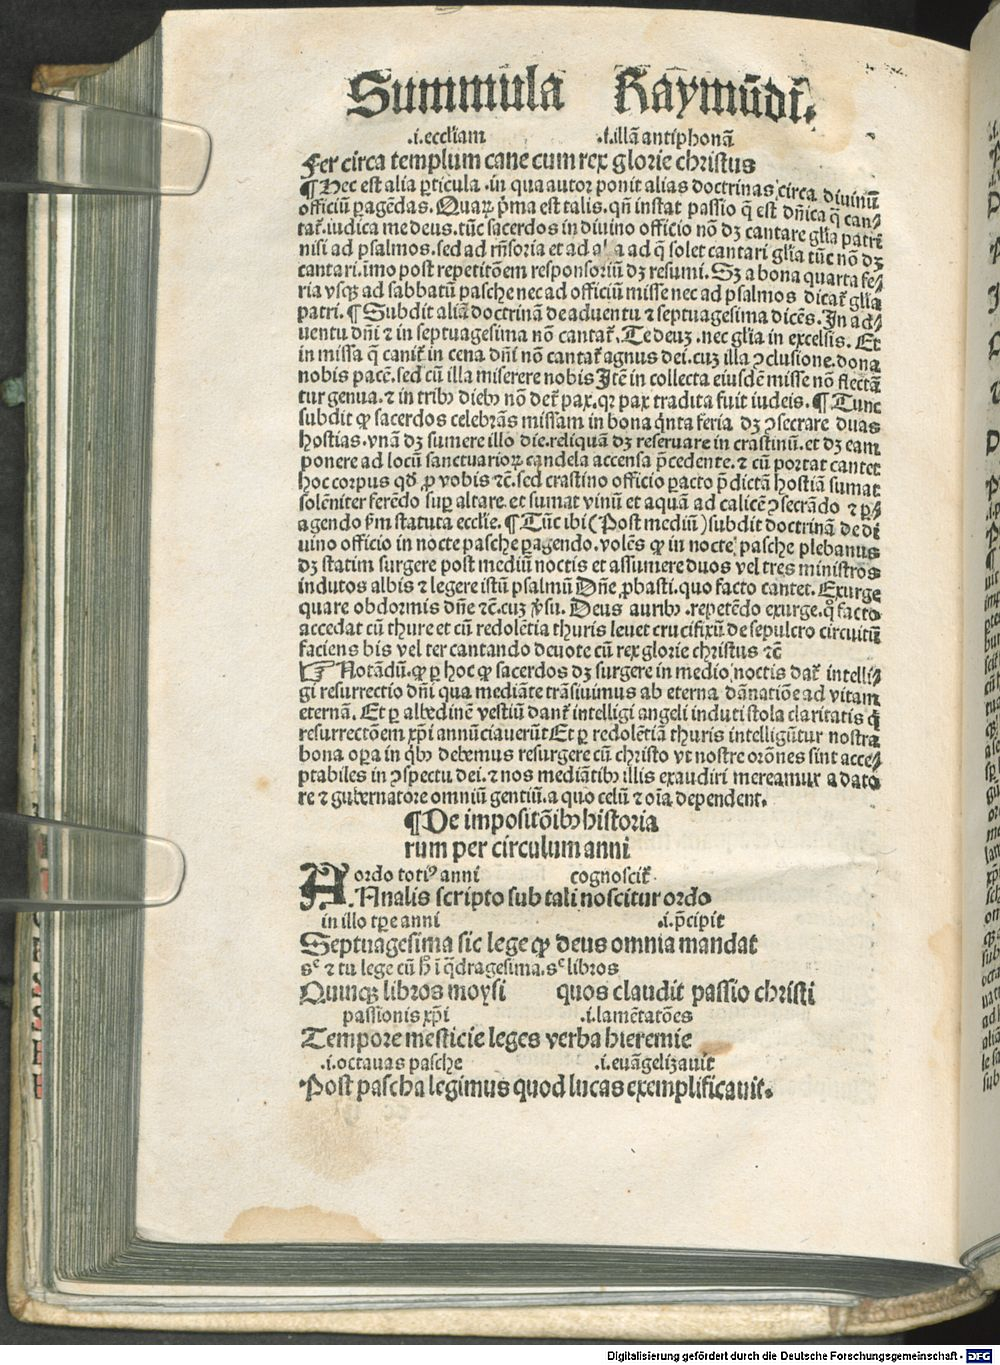 Summula Raymūdi.
.i.eccliam .s.illā antiphonā
Fer circa templum cane cum rex glorie christus
¶ Hec est alia ꝑticula .in qua autor ponit alias doctrinas circa diuinū
officiū ꝑagēdas. Quaꝝ p̄ma est talis. qn̄ instat passio q̄ est dn̄ica q̄ can⸗
tat̄. iudica me deus. tūc sacerdos in diuino officio nō dꝫ cantare gl̄ia patri
nisi ad psalmos. sed ad rn̄soria et ad a ad q̄ solet cantari gl̄ia tūc nō dꝫ
cantari. imo post repetitōem responsoriū dꝫ resumi. Sꝫ a bona quarta fe⸗
ria vsqꝫ ad sabbatū pasche nec ad officiū misse nec ad psalmos dicat̄ gl̄ia
patri. ¶ Subdit aliā doctrinā de aduentu ⁊ septuagesima dicēs. In ad⸗
uentu dn̄i ⁊ in septuagesima nō cantat̄. Te deuꝫ .nec gl̄ia in excelsis. Et
in missa q̄ canit̄ in cena dn̄i nō cantat̄ agnus dei. cuꝫ illa ꝯclusione. dona
nobis pacē. sed cū illa miserere nobis Itē in collecta eiusdē misse nō flectā
tur genua. ⁊ in tribꝫ diebꝫ nō det̄ pax. qꝛ pax tradita fuit iudeis. ¶ Tunc
subdit ꝙ sacerdos celebrās missam in bona q̄nta feria dꝫ ꝯsecrare duas
hostias. vnā dꝫ sumere illo die. reliquā dꝫ reseruare in crastinū. et dꝫ eam
ponere ad locū sanctuarioꝝ candela accensa p̄cedente. ⁊ cū portat cantet
hoc corpus qd̄ ꝓ vobis ⁊c̄. sed crastino officio ꝑacto p̄dictā hostiā sumat
solēniter ferēdo suꝑ altare. et sumat vinū et aquā ad calicē ꝯsecrādo ⁊ ꝑ⸗
agendo ẜm statuta ecclie. ¶ Tūc ibi (Post mediū) subdit doctrinā de di
uino officio in nocte pasche ꝑagendo. volēs ꝙ in nocte pasche plebanus
dꝫ statim surgere post mediū noctis et assumere duos vel tres ministros
indutos albis ⁊ legere istū psalmū Dn̄e ꝓbasti. quo facto cantet. Exurge
quare obdormis dn̄e ⁊c̄. cuꝫ v̄su. Deus auribꝫ .repetēdo exurge. qͦ facto
accedat cū thure et cū redolētia thuris leuet crucifixū de sepulcro circuitū
faciens bis vel ter cantando deuote cū rex glorie christus ⁊c̄
☞ Notādū. ꝙ ꝑ hoc ꝙ sacerdos dꝫ surgere in medio noctis dat̄ intelli⸗
gi resurrectio dn̄i qua mediāte trāsiuimus ab eterna dānatiōe ad vitam
eternā. Et ꝑ albedinē vestiū dant̄ intelligi angeli induti stola claritatis q̄
resurrectōem xp̄i annūciauerūt Et ꝑ redolētiā thuris intelligūtur nostra
bona oꝑa in qͥbꝫ debemus resurgere cū christo vt nostre orōnes sint acce⸗
ptabiles in ꝯspectu dei. ⁊ nos mediātibꝫ illis exaudiri mereamur a dato
re ⁊ gubernatore omniū gentiū. a quo celū ⁊ oīa dependent.
¶ De impositōibꝫ historia
rum per circulum anni
ordo totiꝰ anni cognoscit̄
A. Analis scripto sub tali noscitur ordo
in illo tꝑe anni .i.p̄cipit
Septuagesima sic lege ꝙ deus omnia mandat
sᶜ ⁊ tu lege cū h̄ i q̄dragesima. sᶜ libros
Quinqꝫ libros moysi quos claudit passio christi
passionis xp̄i .i.lamētatōes
Tempore mesticie leges verba hieremie
.i.octauas pasche .i.euāgelizauit
Post pascha legimus quod lucas exemplificauit.
Digitalisierung gefördert durch die Deutsche Forschungsgemeinschaft - DFG